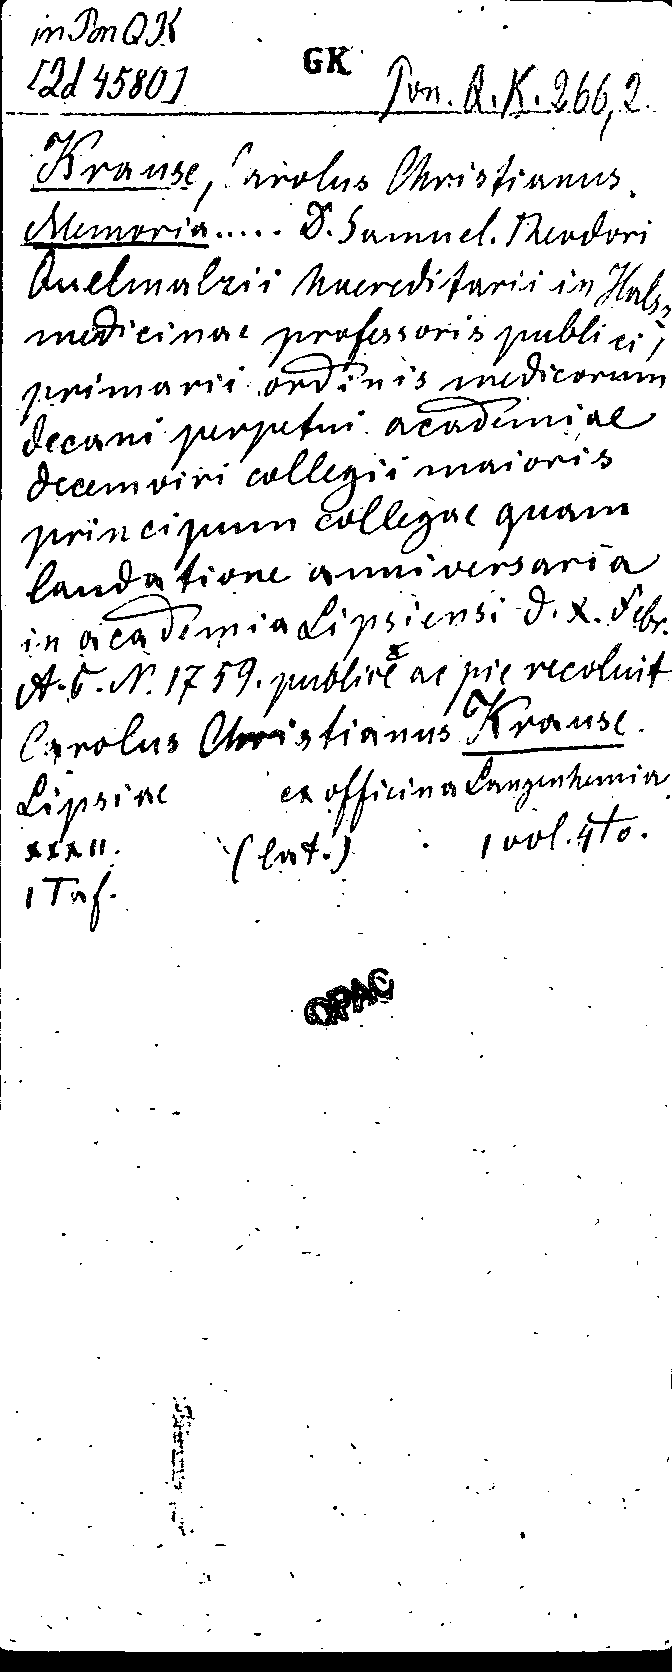 in Pon QK
[2d 4580]
GK
Pon. Q. K. 266,2.
Krause, Carolus Christianus.
Memoria..... D. Samuel. Theodori
Quelmalzii haereditarii in Hals,
medicinae professoris publici,
primarii ordinis medicorum
decani perpetui academiae
decemviri collegii maioris
principum collegae quam
laudatione anniversaria
in academia Lipsiensi d. X. Febr.
A. C. N. 1759. publice ac pie recoluit
Carolus Christianus Krause.
Lipsiae ex officina Langenhemia
XXXII. (lat.) 1 vol. 4to.
1 Taf.
OPAC